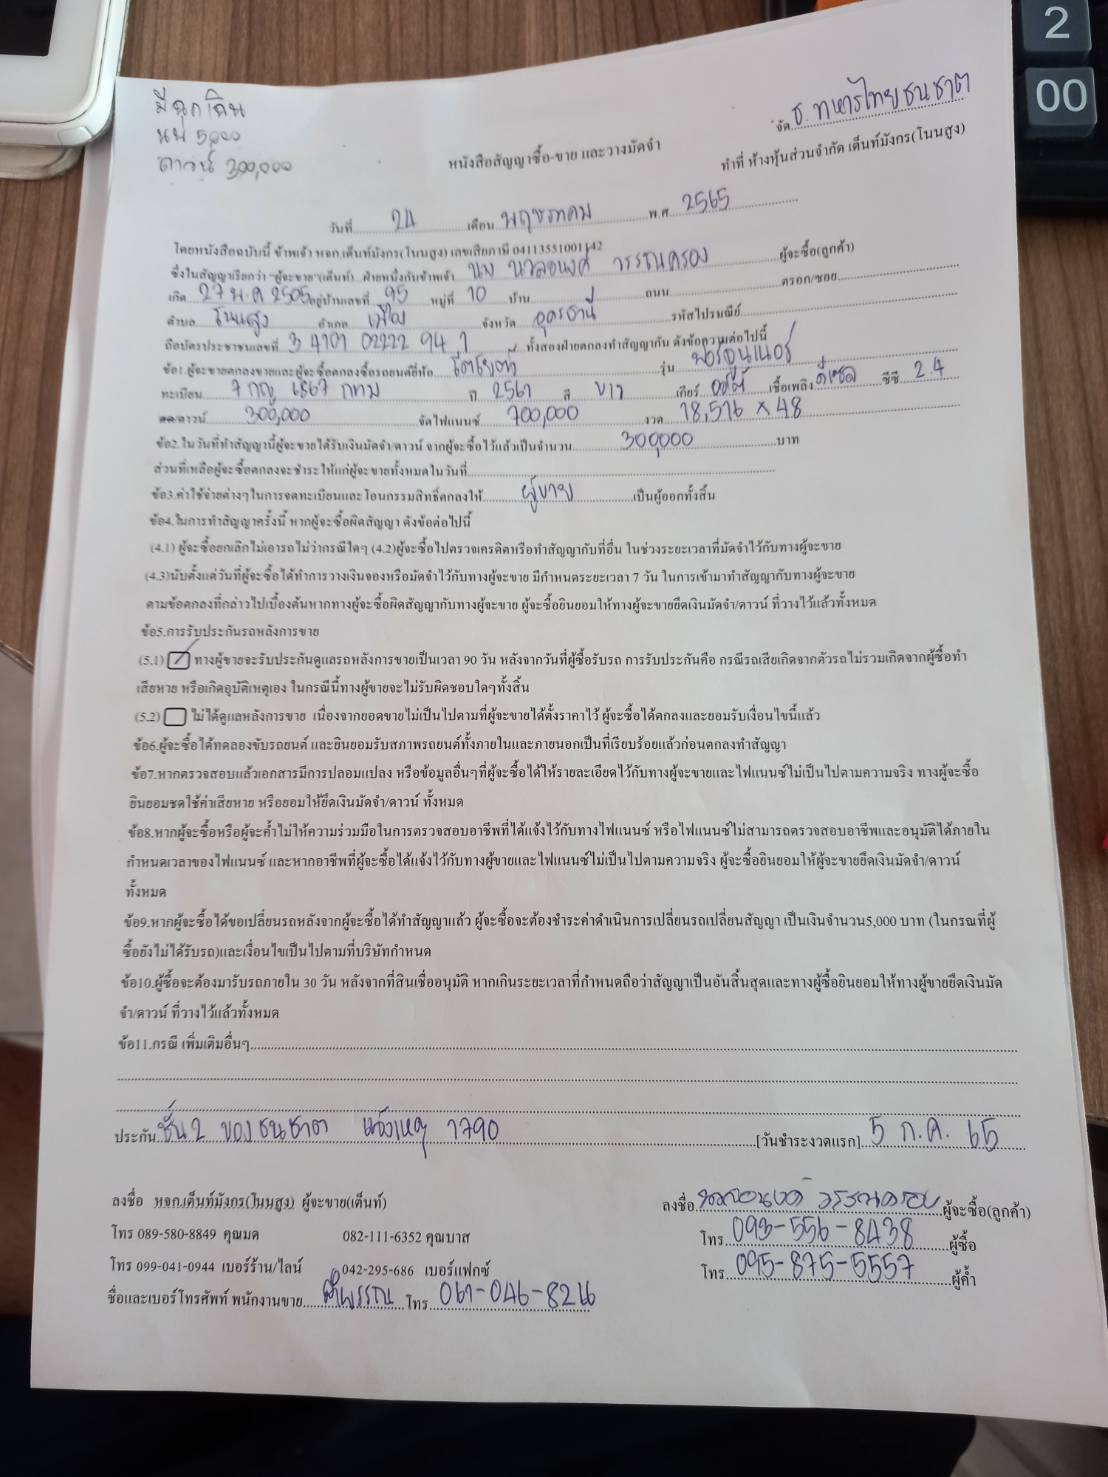 2
00
มีฉุกเฉิน
นน 5,000
ดาวน์ 300,000
จัด ธ. ทหารไทยธนชาต
หนังสือสัญญาซื้อ-ขาย และวางมัดจำ
ทำที่ ห้างหุ้นส่วนจำกัด เต็นท์มังกร(โนนสูง)
วันที่ 24 เดือน พฤษภาคม พ.ศ 2565
โดยหนังสือฉบับนี้ ข้าพเจ้า หจก.เต็นท์มังกร(โนนสูง) เลขเสียภาษี 04113551001142
ซึ่งในสัญญาเรียกว่า "ผู้จะขาย"(เต็นท์) ฝ่ายหนึ่งกับข้าพเจ้า นาง นวลอนงค์ วรรณครอง ผู้จะซื้อ(ลูกค้า)
เกิด 27 พ.ค 2505 อยู่บ้านเลขที่ 95 หมู่ที่ 10 บ้าน ถนน ตรอก/ซอย
ตำบล โนนสูง อำเภอ เมือง จังหวัด อุดรธานี รหัสไปรษณีย์
ถือบัตรประชาชนเลขที่ 3 4101 02222 94 1 ทั้งสองฝ่ายตกลงทำสัญญากัน ดังข้อความต่อไปนี้
ข้อ1.ผู้จะขายตกลงขายและผู้จะซื้อตกลงซื้อรถยนต์ยี่ห้อ โตโยต้า รุ่น ฟอร์จูนเนอร์
ทะเบียน 7 กญ 1867 กทม ปี 2561 สี ขาว เกียร์ ออโต้ เชื้อเพลิง ดีเซล ซีซี 2.4
ดาวน์ 300,000 จัดไฟแนนซ์ 700,000 งวด 18,516 x 48
ข้อ2.ในวันที่ทำสัญญานี้ผู้จะขายได้รับเงินมัดจำ/ดาวน์ จากผู้จะซื้อไว้แล้วเป็นจำนวน 300,000 บาท
ส่วนที่เหลือผู้จะซื้อตกลงจะชำระให้แก่ผู้จะขายทั้งหมดในวันที่
ข้อ3.ค่าใช้จ่ายต่างๆในการจดทะเบียนและโอนกรรมสิทธิ์ตกลงให้ ผู้ขาย เป็นผู้ออกทั้งสิ้น
ข้อ4.ในการทำสัญญาครั้งนี้ หากผู้จะซื้อผิดสัญญา ดังข้อต่อไปนี้
(4.1) ผู้จะซื้อยกเลิกไม่เอารถไม่ว่ากรณีใดๆ (4.2)ผู้จะซื้อไปตรวจเครดิตหรือทำสัญญากับที่อื่น ในช่วงระยะเวลาที่มัดจำไว้กับทางผู้จะขาย
(4.3)นับตั้งแต่วันที่ผู้จะซื้อได้ทำการวางเงินจองหรือมัดจำไว้กับทางผู้จะขาย มีกำหนดระยะเวลา 7 วัน ในการเข้ามาทำสัญญากับทางผู้จะขาย
ตามข้อตกลงที่กล่าวไปเบื้องต้นหากทางผู้จะซื้อผิดสัญญากับทางผู้จะขาย ผู้จะซื้อยินยอมให้ทางผู้จะขายยึดเงินมัดจำ/ดาวน์ ที่วางไว้แล้วทั้งหมด
ข้อ5.การรับประกันรถหลังการขาย
(5.1) ทางผู้ขายจะรับประกันดูแลรถหลังการขายเป็นเวลา 90 วัน หลังจากวันที่ผู้ซื้อรับรถ การรับประกันคือ กรณีรถเสียเกิดจากตัวรถไม่รวมเกิดจากผู้ซื้อทำ
เสียหาย หรือเกิดอุบัติเหตุเอง ในกรณีนี้ทางผู้ขายจะไม่รับผิดชอบใดๆทั้งสิ้น
(5.2) ไม่ได้ดูแลหลังการขาย เนื่องจากยอดขายไม่เป็นไปตามที่ผู้จะขายได้ตั้งราคาไว้ ผู้จะซื้อได้ตกลงและยอมรับเงื่อนไขนี้แล้ว
ข้อ6.ผู้จะซื้อได้ทดลองขับรถยนต์ และยินยอมรับสภาพรถยนต์ทั้งภายในและภายนอกเป็นที่เรียบร้อยแล้วก่อนตกลงทำสัญญา
ข้อ7.หากตรวจสอบแล้วเอกสารมีการปลอมแปลง หรือข้อมูลอื่นๆที่ผู้จะซื้อได้ให้รายละเอียดไว้กับทางผู้จะขายและไฟแนนซ์ไม่เป็นไปตามความจริง ทางผู้จะซื้อ
ยินยอมชดใช้ค่าเสียหาย หรือยอมให้ยึดเงินมัดจำ/ดาวน์ ทั้งหมด
ข้อ8.หากผู้จะซื้อหรือผู้จะค้ำไม่ให้ความร่วมมือในการตรวจสอบอาชีพที่ได้แจ้งไว้กับทางไฟแนนซ์ หรือไฟแนนซ์ไม่สามารถตรวจสอบอาชีพและอนุมัติได้ภายใน
กำหนดเวลาของไฟแนนซ์ และหากอาชีพที่ผู้จะซื้อได้แจ้งไว้กับทางผู้ขายและไฟแนนซ์ไม่เป็นไปตามความจริง ผู้จะซื้อยินยอมให้ผู้จะขายยึดเงินมัดจำ/ดาวน์
ทั้งหมด
ข้อ9.หากผู้จะซื้อได้ขอเปลี่ยนรถหลังจากผู้จะซื้อได้ทำสัญญาแล้ว ผู้จะซื้อจะต้องชำระค่าดำเนินการเปลี่ยนรถเปลี่ยนสัญญา เป็นเงินจำนวน5,000 บาท (ในกรณที่ผู้
ซื้อยังไม่ได้รับรถ)และเงื่อนไขเป็นไปตามที่บริษัทกำหนด
ข้อ10.ผู้ซื้อจะต้องมารับรถภายใน 30 วัน หลังจากที่สินเชื่ออนุมัติ หากเกินระยะเวลาที่กำหนดถือว่าสัญญาเป็นอันสิ้นสุดและทางผู้ซื้อยินยอมให้ทางผู้ขายยึดเงินมัด
จำ/ดาวน์ ที่วางไว้แล้วทั้งหมด
ข้อ11.กรณี เพิ่มเติมอื่นๆ
ประกัน ชั้น2 ของธนชาต แจ้งเหตุ 1790 [วันชำระงวดแรก] 5 ก.ค. 65
ลงชื่อ หจก.เต็นท์มังกร(โนนสูง) ผู้จะขาย(เต็นท์)
ลงชื่อ นวลอนงค์ วรรณครอง ผู้จะซื้อ(ลูกค้า)
โทร 089-580-8849 คุณมด 082-111-6352 คุณบาส
โทร 093-556-8438 ผู้ซื้อ
โทร 099-041-0944 เบอร์ร้าน/ไลน์ 042-295-686 เบอร์แฟกซ์
โทร 095-875-5557 ผู้ค้ำ
ชื่อและเบอร์โทรศัพท์ พนักงานขาย โทร 061-046-8216